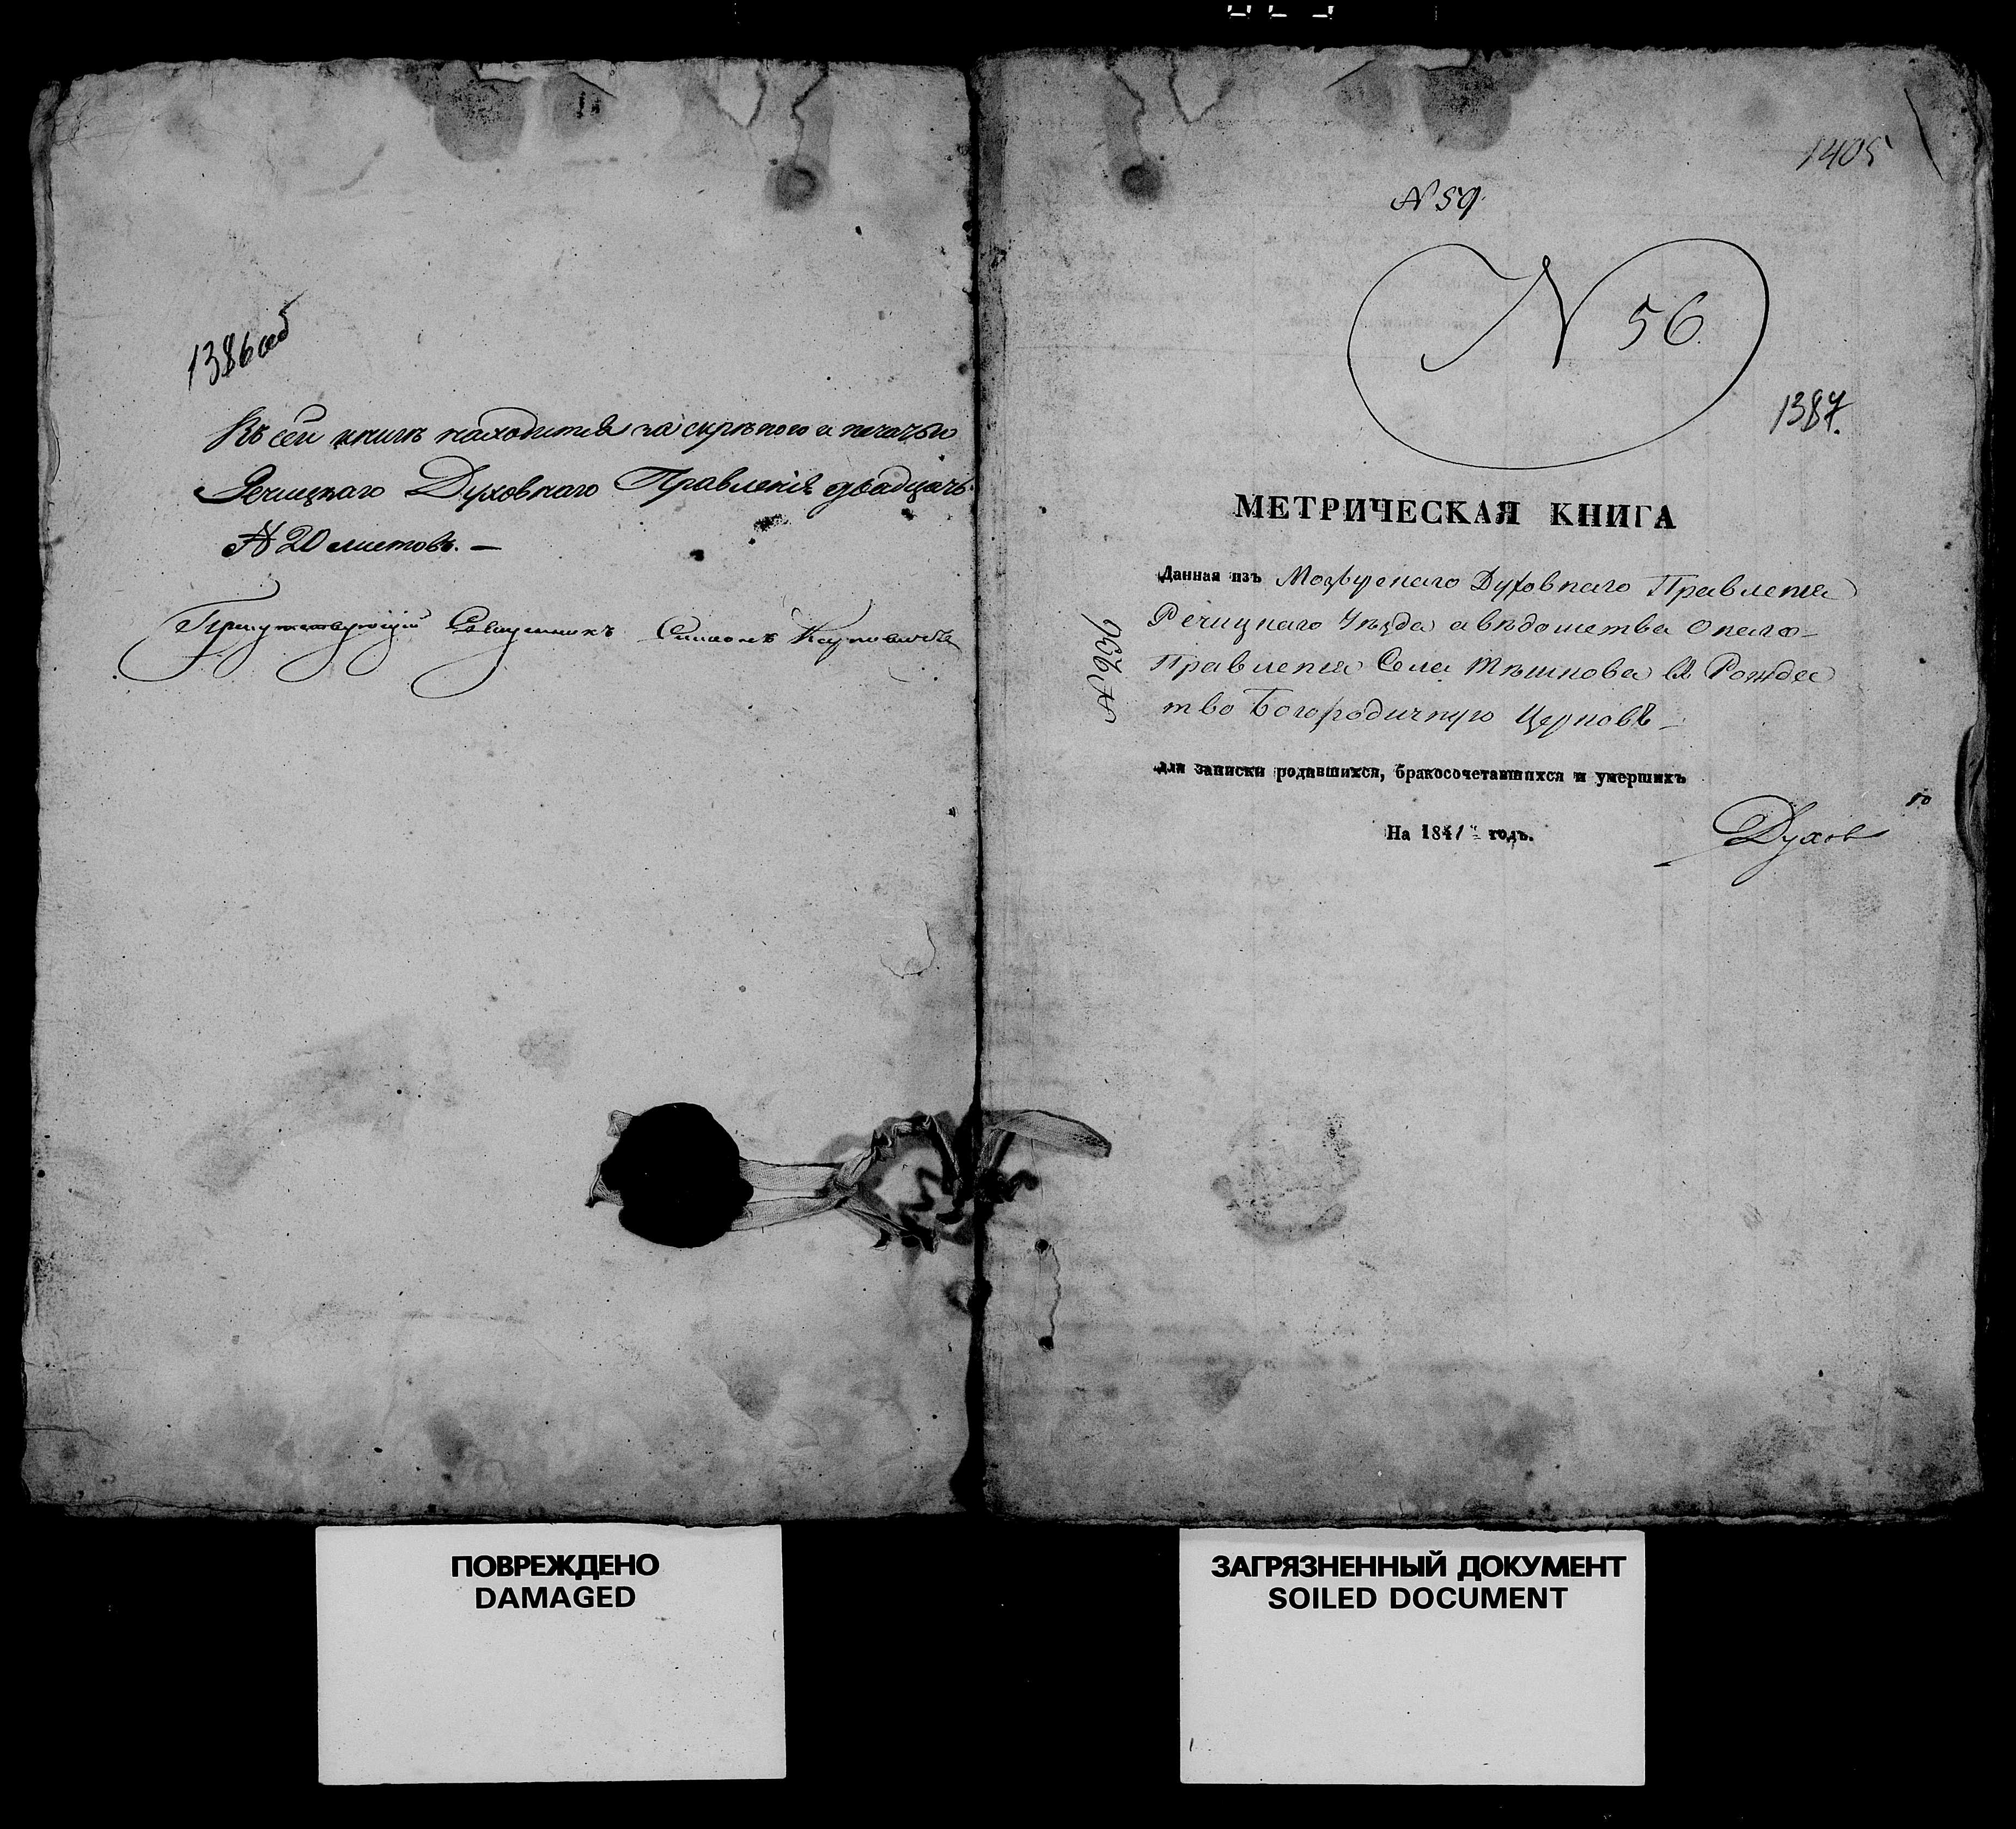 1386 об
Къ сей книгѣ находится за скрѣпою и печатью
Речицкаго Духовнаго Правленія двадцать
№ 20 листовъ. —
Присутствующій Священникъ Симеонъ
1405
N 59.
N 56.
1387.
МЕТРИЧЕСКАЯ КНИГА
Данная изъ Мозырскаго Духовнаго Правленія
Речицкаго Уѣзда а вѣдомства Онаго
Правленія Села въ Рождес
тво Богородичную Церковь
N 936
для записки родившихся, бракосочетавшихся и умершихъ
На 1841 годъ.
Духов
ПОВРЕЖДЕНО
DAMAGED
ЗАГРЯЗНЕННЫЙ ДОКУМЕНТ
SOILED DOCUMENT